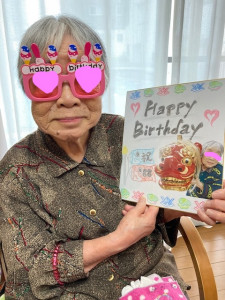 happy birthday
Happy
Birthday
祝